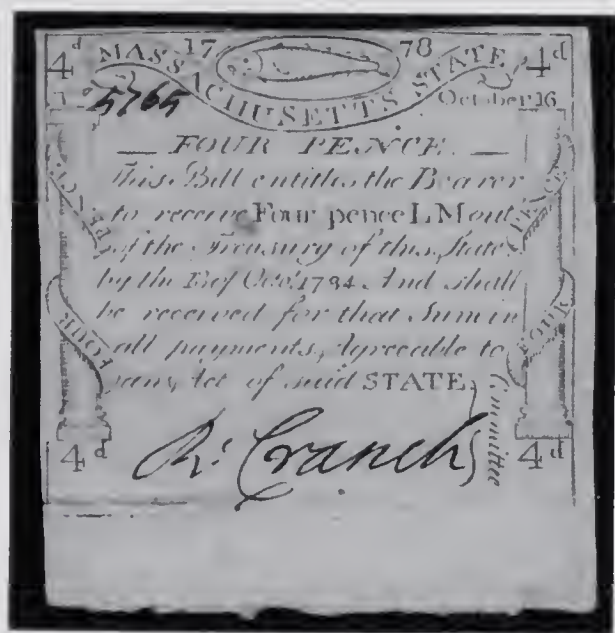 4d 17 78 4d
MASSACHUSETTS STATE
5765 October 16
FOUR PENCE
This Bill entitles the Bearer
to receive Four pence L M out
of the Treasury of this State
by the 18th Octo. 1784 And shall
be received for that Sum in
all payments, Agreeable to
an Act of said STATE
FOUR PENCE
FOUR PENCE
Committee
Rd. Cranch
4d 4d